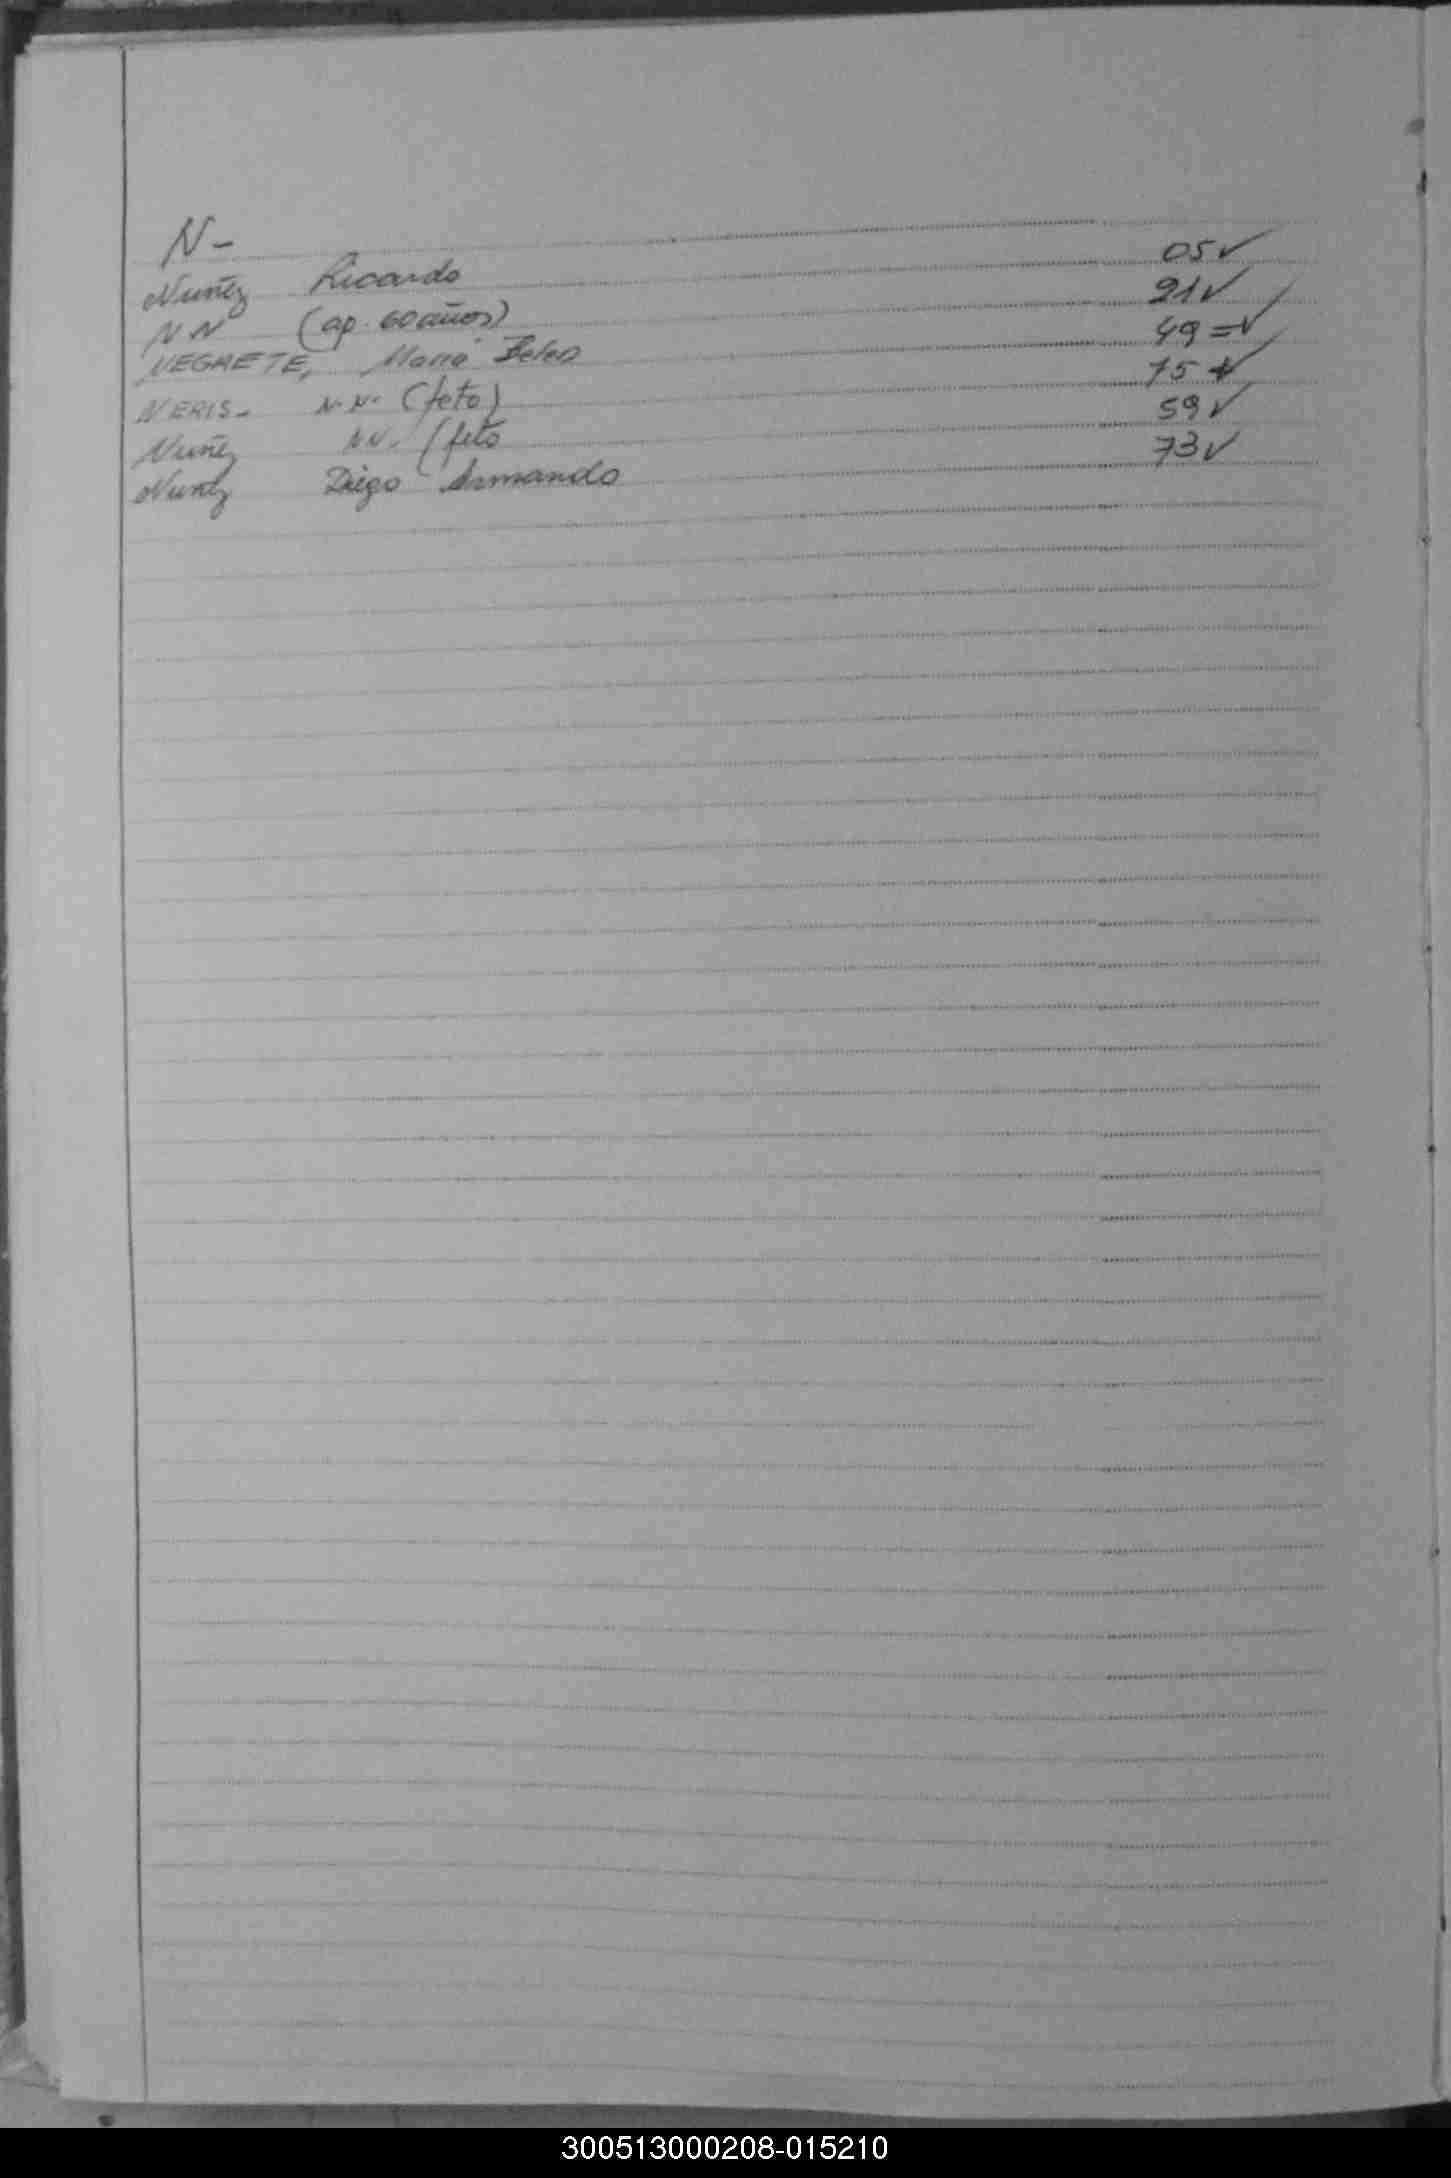 N-
Nuñez Ricardo 05✓
NN (ap. 60 años) 21✓
NEGRETE, Maria Belen 49=✓
NERIS- N.N. (feto) 75 ✓
Nuñez NN. (feto 59✓
Nuñez Diego Armando 73✓
300513000208-015210